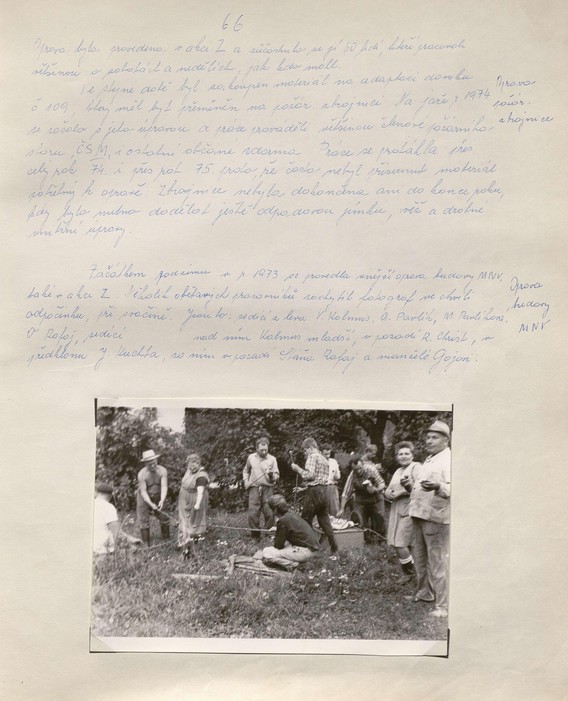 66
Oprava byla provedena v akci Z a zúčastnilo se jí 60 lidí, kteří pracovali
většinou o sobotách a nedělích, jak kdo mohl.
Ve stejné době byl zakoupen materiál na adaptaci domku
č 109, který měl být přeměněn na požár. zbrojnici. Na jaře r 1974
se začalo s jeho úpravou a práce prováděli většinou členové požárního
sboru, ČSM, i ostatní občané zdarma. Práce se protáhla přes
celý rok 74. i přes rok 75. proto, že často nebyl přísunut materiál
potřebný k opravě. Zbrojnice nebyla dokončena ani do konce roku,
kdy bylo nutno dodělat ještě odpadovou jímku, věž a drobné
vnitřní úpravy.
Oprava
požár.
zbrojnice
Začátkem podzimu v r 1973 se provedla vnější oprava budovy MNV.
také v akci Z. Několik obětavých pracovníků zachytil fotograf ve chvíli
odpočinku, při svačině. Jsou to: sedící z leva V. Kalmus, A. Pavlík, M. Pavlíková,
O. Rafaj, sedící nad ním Kalmus mladší, v pozadí R. Christ, v
předklonu J. Kuchta, za ním v pozadí Stáňa Rafaj a manželé Gajovi.
Oprava
budovy
MNV